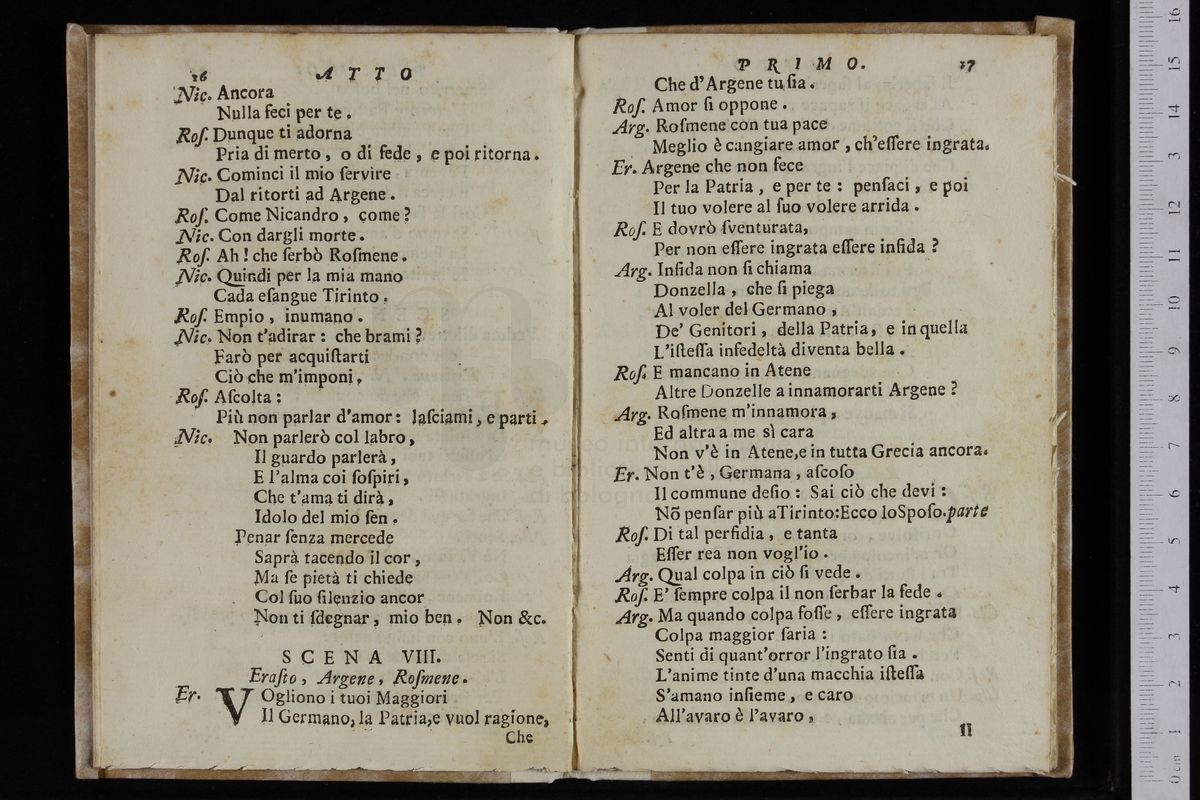 16 ATTO
Nic. Ancora
Nulla feci per te .
Roſ. Dunque ti adorna
Pria di merto , o di fede , e poi ritorna .
Nic. Cominci il mio ſervire
Dal ritorti ad Argene .
Roſ. Come Nicandro , come ?
Nic. Con dargli morte .
Roſ. Ah ! che ſerbò Roſmene .
Nic. Quindi per la mia mano
Cada eſangue Tirinto .
Roſ. Empio , inumano .
Nic. Non t'adirar : che brami ?
Farò per acquiſtarti
Ciò che m'imponi ,
Roſ. Aſcolta :
Più non parlar d'amor : laſciami , e parti .
Nic. Non parlerò col labro ,
Il guardo parlerà ,
E l'alma coi ſoſpiri ,
Che t'ama ti dirà ,
Idolo del mio ſen .
Penar ſenza mercede
Saprà tacendo il cor ,
Ma ſe pietà ti chiede
Col ſuo ſilenzio ancor
Non ti ſdegnar , mio ben . Non &c.
SCENA VIII.
Eraſto , Argene , Roſmene .
Er. VOgliono i tuoi Maggiori
Il Germano, la Patria,e vuol ragione,
Che
PRIMO. 17
Che d'Argene tu ſia .
Roſ. Amor ſi oppone .
Arg. Roſmene con tua pace
Meglio è cangiare amor , ch'eſſere ingrata.
Er. Argene che non fece
Per la Patria , e per te : penſaci , e poi
Il tuo volere al ſuo volere arrida .
Roſ. E dovrò ſventurata,
Per non eſſere ingrata eſſere infida ?
Arg. Infida non ſi chiama
Donzella , che ſi piega
Al voler del Germano ,
De' Genitori , della Patria, e in quella
L'iſteſſa infedeltà diventa bella .
Roſ. E mancano in Atene
Altre Donzelle a innamorarti Argene ?
Arg. Roſmene m'innamora ,
Ed altra a me sì cara
Non v'è in Atene,e in tutta Grecia ancora.
Er. Non t'è , Germana , aſcoſo
Il commune deſio : Sai ciò che devi :
Nõ penſar più aTirinto:Ecco loSpoſo.parte
Roſ. Di tal perfidia , e tanta
Eſſer rea non vogl'io .
Arg. Qual colpa in ciò ſi vede .
Roſ. E' ſempre colpa il non ſerbar la fede .
Arg. Ma quando colpa foſſe , eſſere ingrata
Colpa maggior ſaria :
Senti di quant'orror l'ingrato ſia .
L'anime tinte d'una macchia iſteſſa
S'amano inſieme , e caro
All'avaro è l'avaro ,
Il
0 cm 1 2 3 4 5 6 7 8 9 10 11 12 13 14 15 16